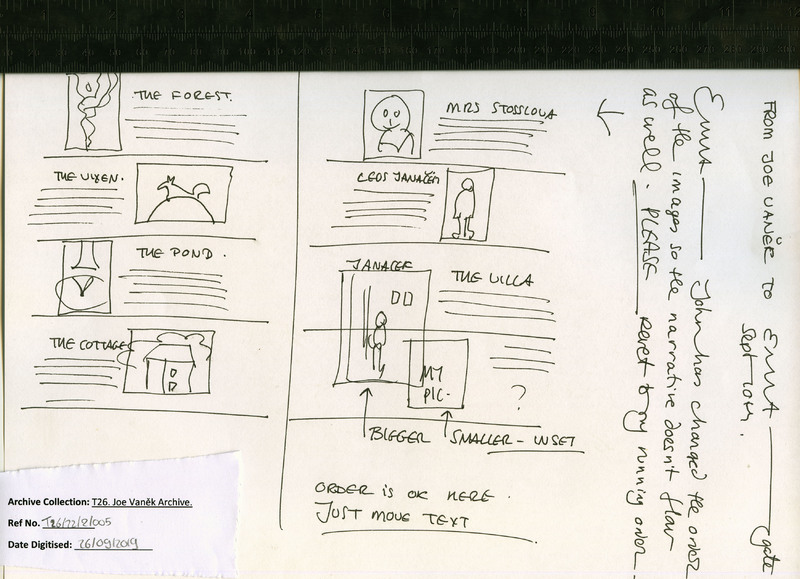 THE FOREST.
THE VIXEN.
THE POND.
THE COTTAGE
MRS STOSSLOVA
LEOS JANAČEK
JANACEK
THE VILLA
MY
PIC.
?
BIGGER
SMALLER - INSET
ORDER IS OK HERE.
JUST MOVE TEXT
FROM JOE VANĚK TO EMMA
Sept 10th.
EMMA — John has changed the order
of the images so the narrative doesn't flow
as well. PLEASE revert to my running order
Archive Collection: T26. Joe Vaněk Archive.
Ref No. T26/22/2/005
Date Digitised: 26/09/2019